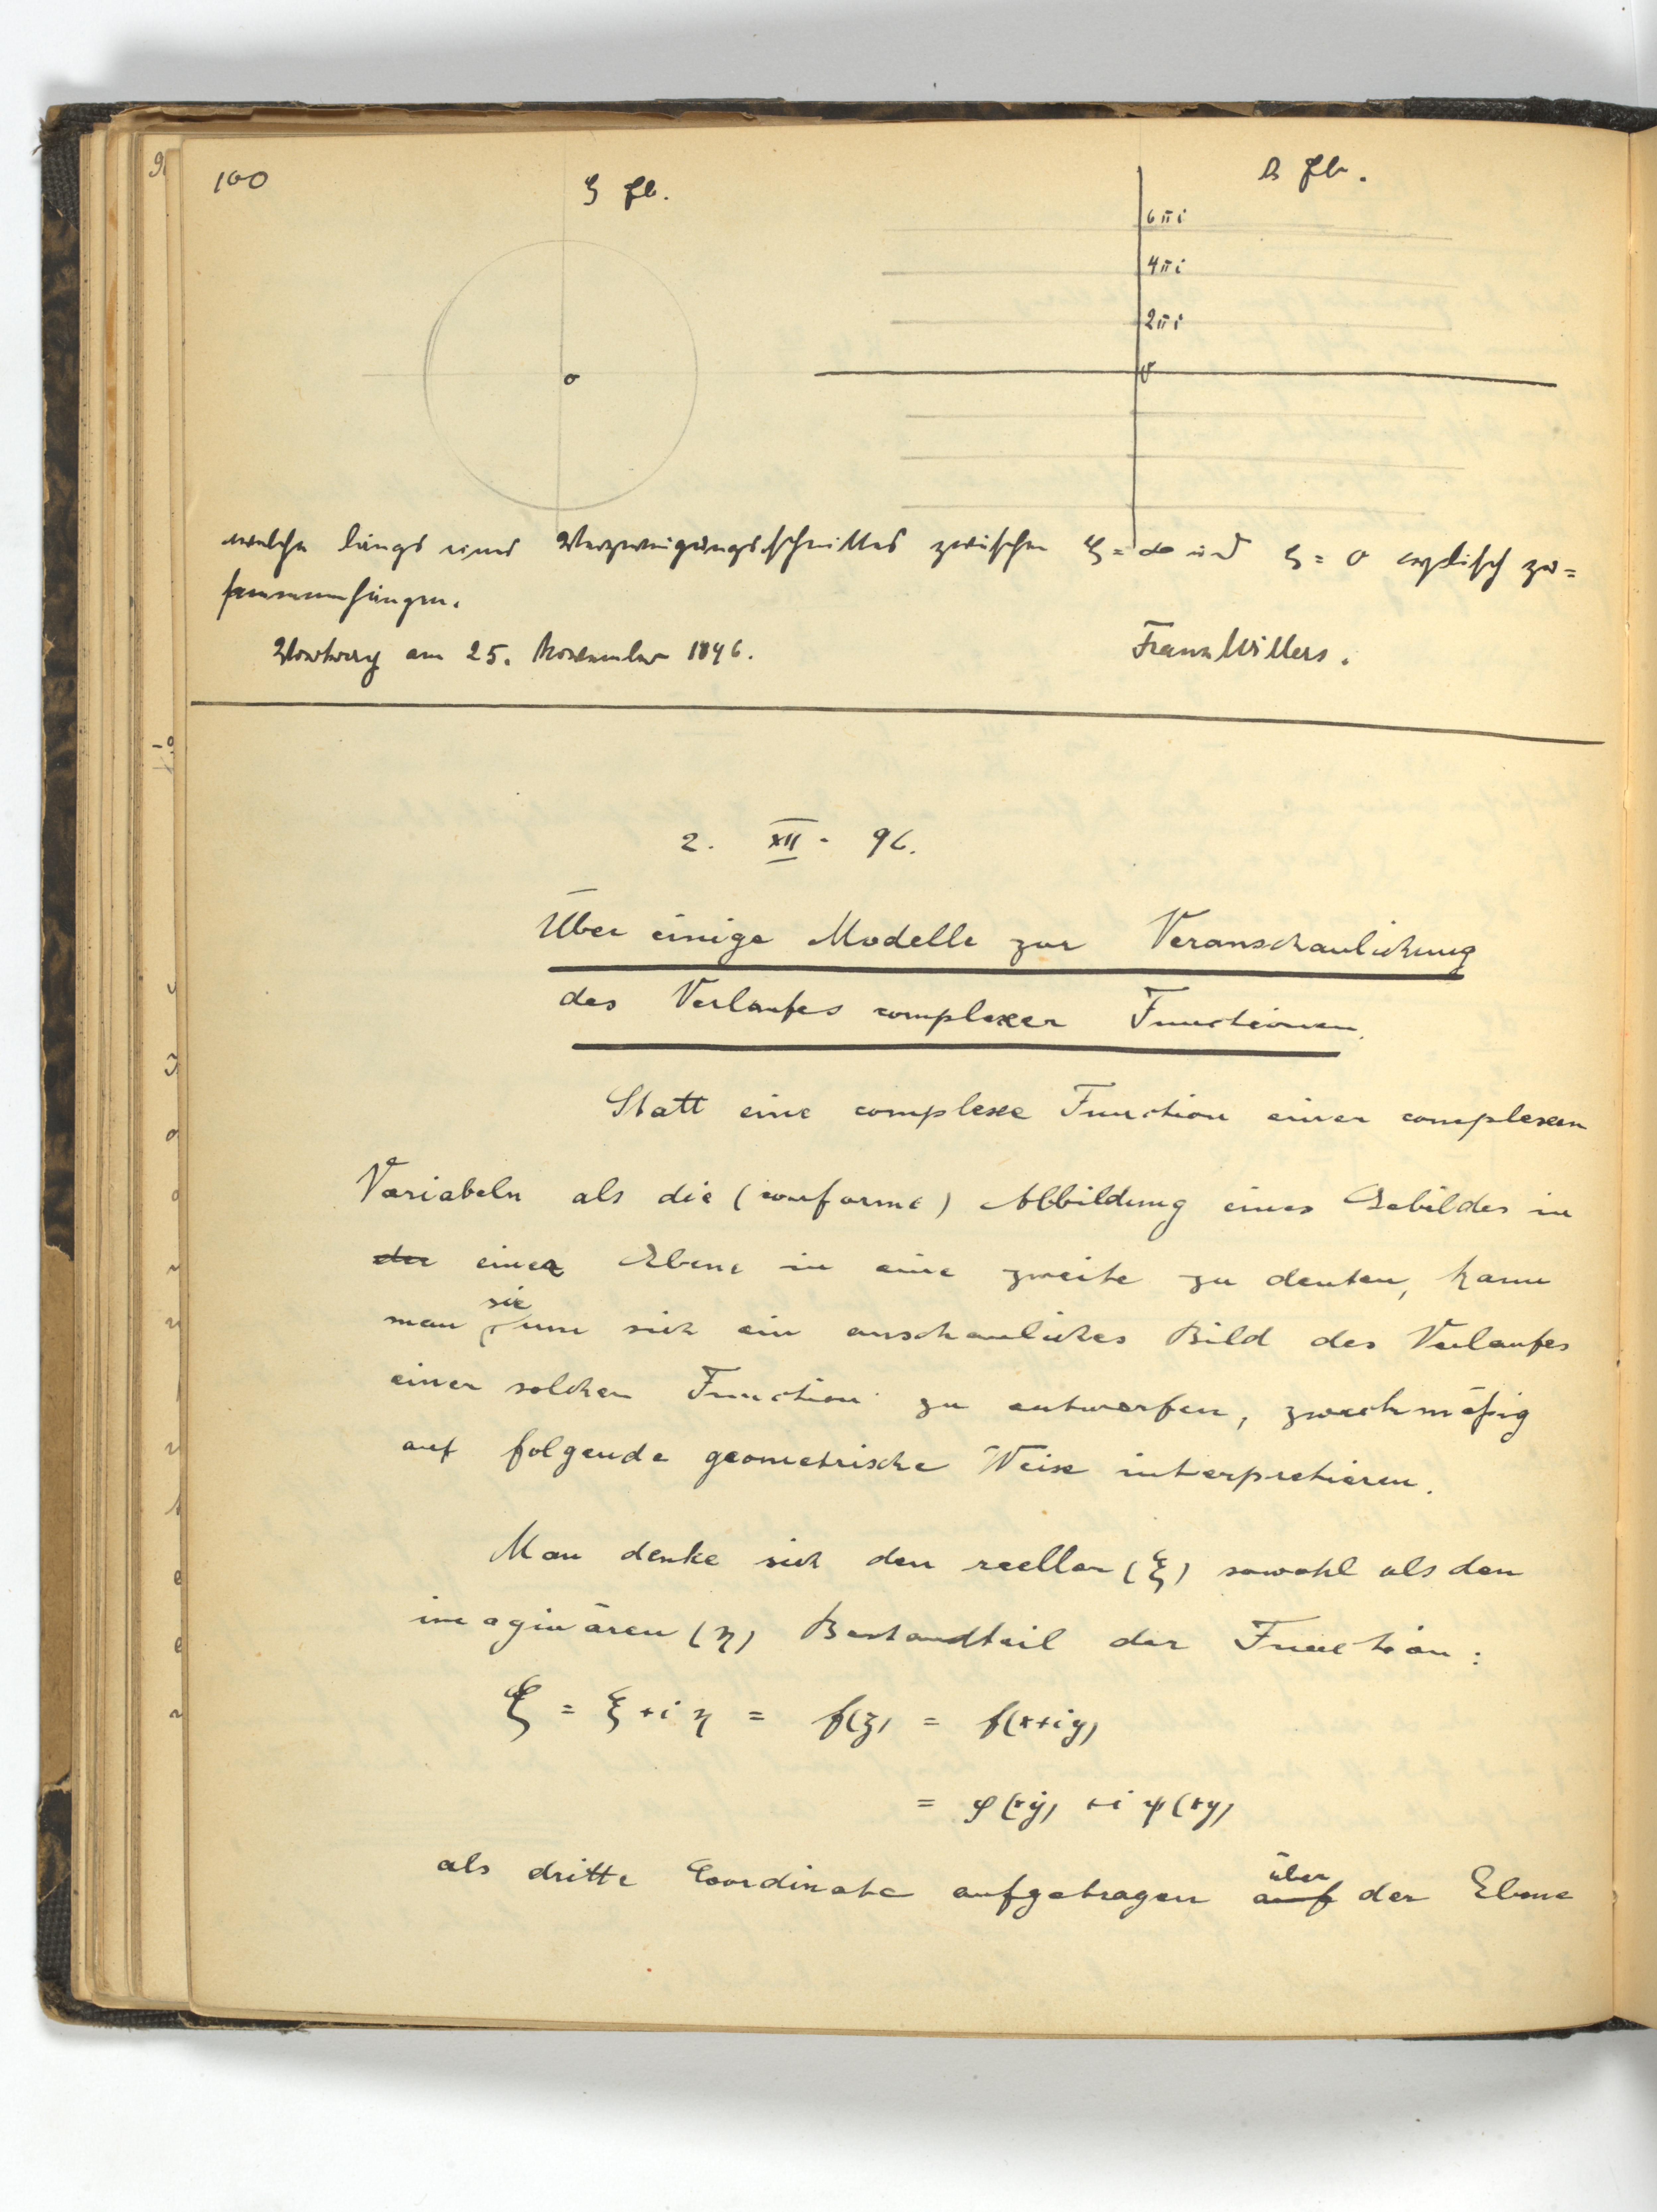 100
ζ Eb.
s Eb.
6πi
4πi
2πi
0
0
welche längs eines Verzweigungsschnittes zwischen ζ = ∞ und ζ = 0 cyklisch zu=
sammenhängen.
Vortrag am 25. November 1896.
Franz Willers.
2. XII. 96.
Über einige Modelle zur Veranschaulichung
des Verlaufes complexer Functionen.
Statt eine complexe Function einer complexen
Variabeln als die (conforme) Abbildung eines Gebildes in
der einer Ebene in eine zweite zu deuten, kann
man sie um sich ein anschauliches Bild des Verlaufes
einer solchen Function zu entwerfen, zweckmäßig
auf folgende geometrische Weise interpretieren.
Man denke sich den reellen (ξ) sowohl als den
imaginären (η) Bestandteil der Function:
ζ = ξ + i η = f(z) = f(x+iy)
= φ(xy) + i ψ(xy)
als dritte Coordinate aufgetragen auf über der Ebene